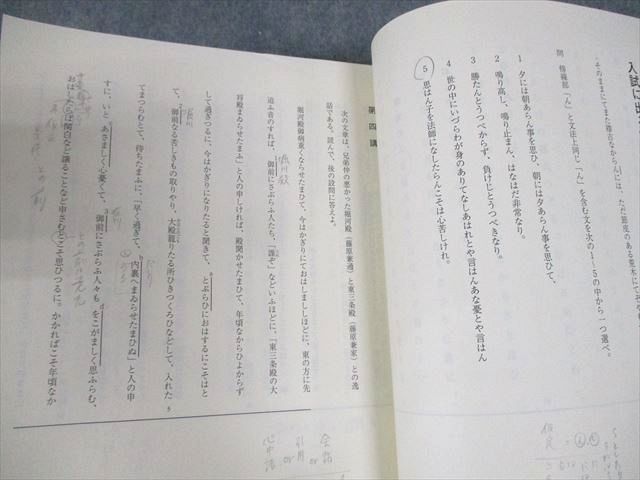 入試に出
そのままにてまた稽古なからんには、ただ態度のある荒木にて
問　傍線部「ん」と文法上同じ「ん」を含む文を次の1～5の中から一つ選べ。
1　夕には朝あらん事を思ひ、朝には夕あらん事を思ひて、
2　鳴り高し、鳴り止まん。はなはだ非常なり。
3　勝たんとうつべからず、負けじとうつべきなり。
4　世の中にいづらわが身のありてなしあはれとや言はんあな憂とや言はん
5　思はん子を法師になしたらんこそは心苦しけれ。
第四講
次の文章は、兄弟仲の悪かった堀河殿（藤原兼通）と東三条殿（藤原兼家）との逸
話である。読んで、後の設問に答えよ。
堀河殿御病重くならせたまひて、今はかぎりにておはしまししほどに、東の方に先
追ふ音のすれば、御前にさぶらふ人たち、「誰ぞ」などいふほどに、「東三条殿の大
将殿まゐらせたまふ」と人の申しければ、殿聞かせたまひて、年頃なからひよからず
して過ぎつるに、今はかぎりになりたると聞きて、とぶらひにおはするにこそはと
て、御前なる苦しきもの取りやり、大殿籠りたる所ひきつくろひなどして、入れた
5
てまつらむとて、待ちたまふに、「早く過ぎて、内裏へまゐらせたまひぬ」と人の申
すに、いとあさましく心憂くて、御前にさぶらふ人々もをこがましく思ふらむ、
おはしたらば関白など譲ることなど申さむとこそ思ひつるに。かかればこそ年頃なか
堀川殿
会話
or
引用
or
心中語